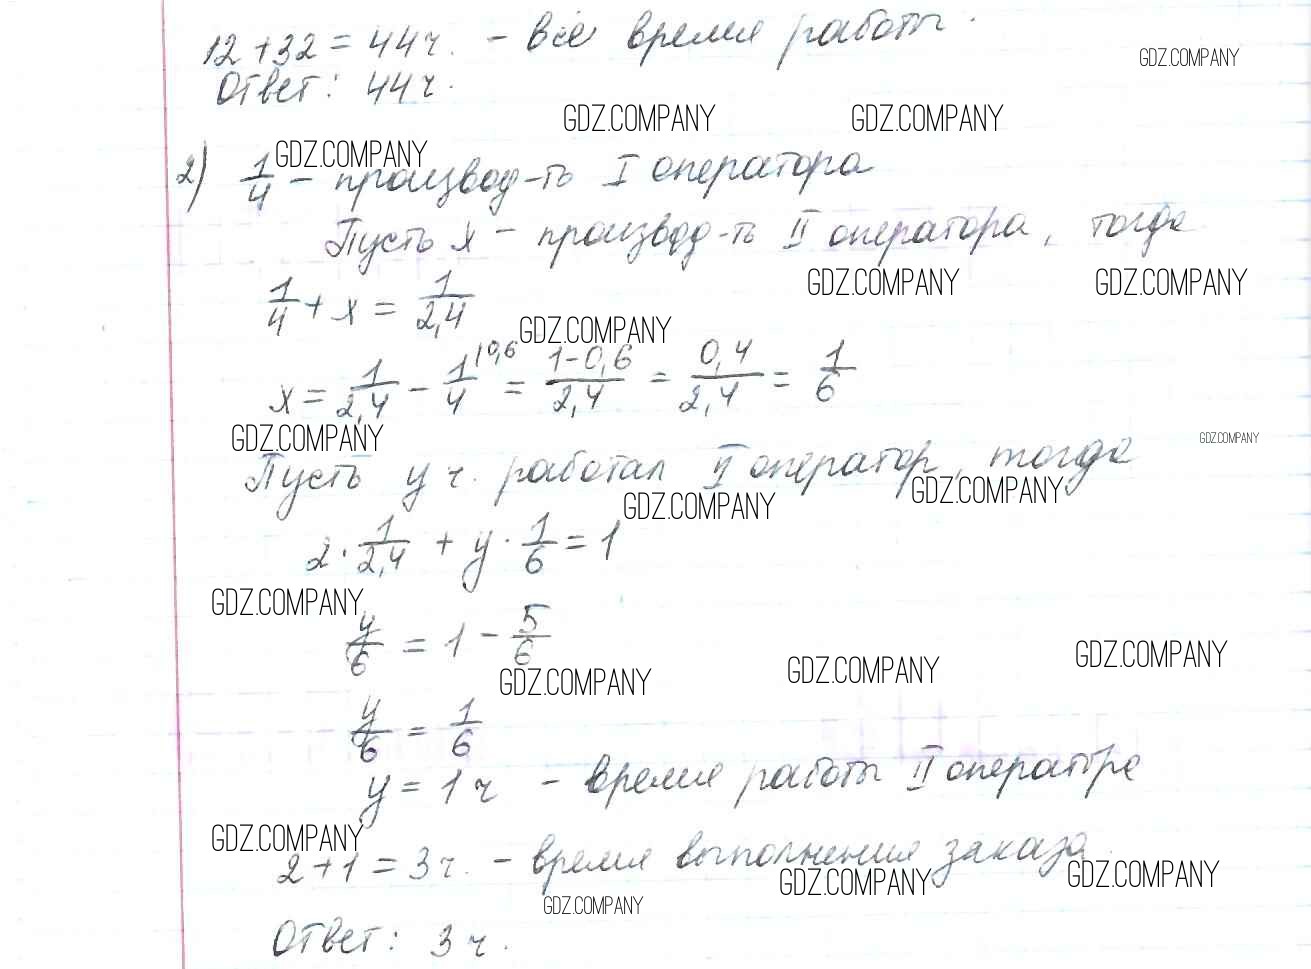 12 + 32 = 44 ч. - всё время работы.
GDZ.COMPANY
Ответ: 44 ч.
GDZ.COMPANY GDZ.COMPANY
GDZ.COMPANY
2) 1/4 - производ-ть I оператора
Пусть x - производ-ть II оператора, тогда
GDZ.COMPANY GDZ.COMPANY
1/4 + x = 1/2,4
GDZ.COMPANY
x = 1/2,4 - 1/4 \0,6 = 1-0,6/2,4 = 0,4/2,4 = 1/6
GDZ.COMPANY GDZ.COMPANY
Пусть y ч. работал II оператор, тогда
GDZ.COMPANY GDZ.COMPANY
2 · 1/2,4 + y · 1/6 = 1
GDZ.COMPANY
y/6 = 1 - 5/6
GDZ.COMPANY GDZ.COMPANY GDZ.COMPANY
y/6 = 1/6
y = 1 ч - время работы II оператора
GDZ.COMPANY
2 + 1 = 3 ч. - время выполнения заказа
GDZ.COMPANY GDZ.COMPANY
GDZ.COMPANY
Ответ: 3 ч.